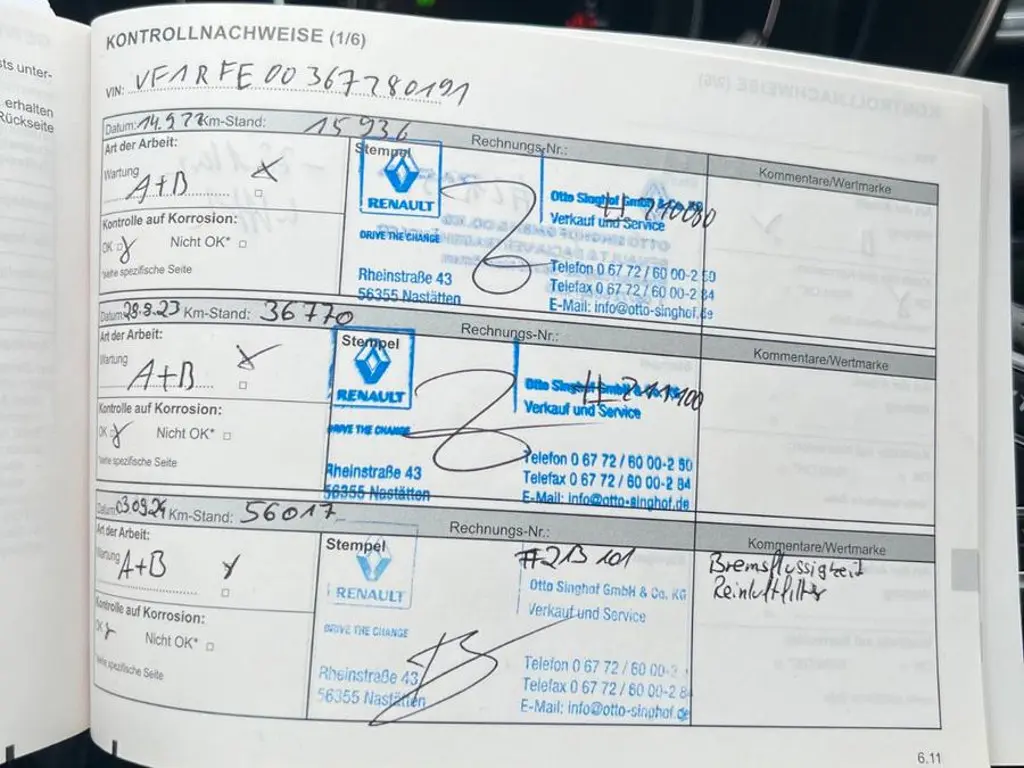 KONTROLLNACHWEISE (1/6)
VIN: VF1RFE00367280191
sts unter-
erhalten
Rückseite
Datum: 14.9.22 Km-Stand: 15 936
Art der Arbeit:
Stempel
Rechnungs-Nr.:
Kommentare/Wertmarke
Wartung
A+B
RENAULT
DRIVE THE CHANGE
Otto Singhof GmbH & Co. KG
Verkauf und Service
Kontrolle auf Korrosion:
OK
Nicht OK*
*siehe spezifische Seite
Rheinstraße 43
56355 Nastätten
Telefon 0 67 72 / 60 00-2 80
Telefax 0 67 72 / 60 00-2 84
E-Mail: info@otto-singhof.de
Datum: 28.8.23 Km-Stand: 36770
Art der Arbeit:
Stempel
Rechnungs-Nr.:
Kommentare/Wertmarke
Wartung
A+B
RENAULT
DRIVE THE CHANGE
Verkauf und Service
Kontrolle auf Korrosion:
OK
Nicht OK*
*siehe spezifische Seite
Rheinstraße 43
56355 Nastätten
Telefon 0 67 72 / 60 00-2 80
Telefax 0 67 72 / 60 00-2 84
E-Mail: info@otto-singhof.de
Datum: 03.09.24 Km-Stand: 56017
Art der Arbeit:
Stempel
Rechnungs-Nr.:
#213101
Kommentare/Wertmarke
Bremsflüssigkeit
Reinluftfilter
Wartung
A+B
RENAULT
DRIVE THE CHANGE
Otto Singhof GmbH & Co. KG
Verkauf und Service
Kontrolle auf Korrosion:
OK
Nicht OK*
*siehe spezifische Seite
Rheinstraße 43
56355 Nastätten
Telefon 0 67 72 / 60 00-2
Telefax 0 67 72 / 60 00-2 8
E-Mail: info@otto-singhof.de
6.11